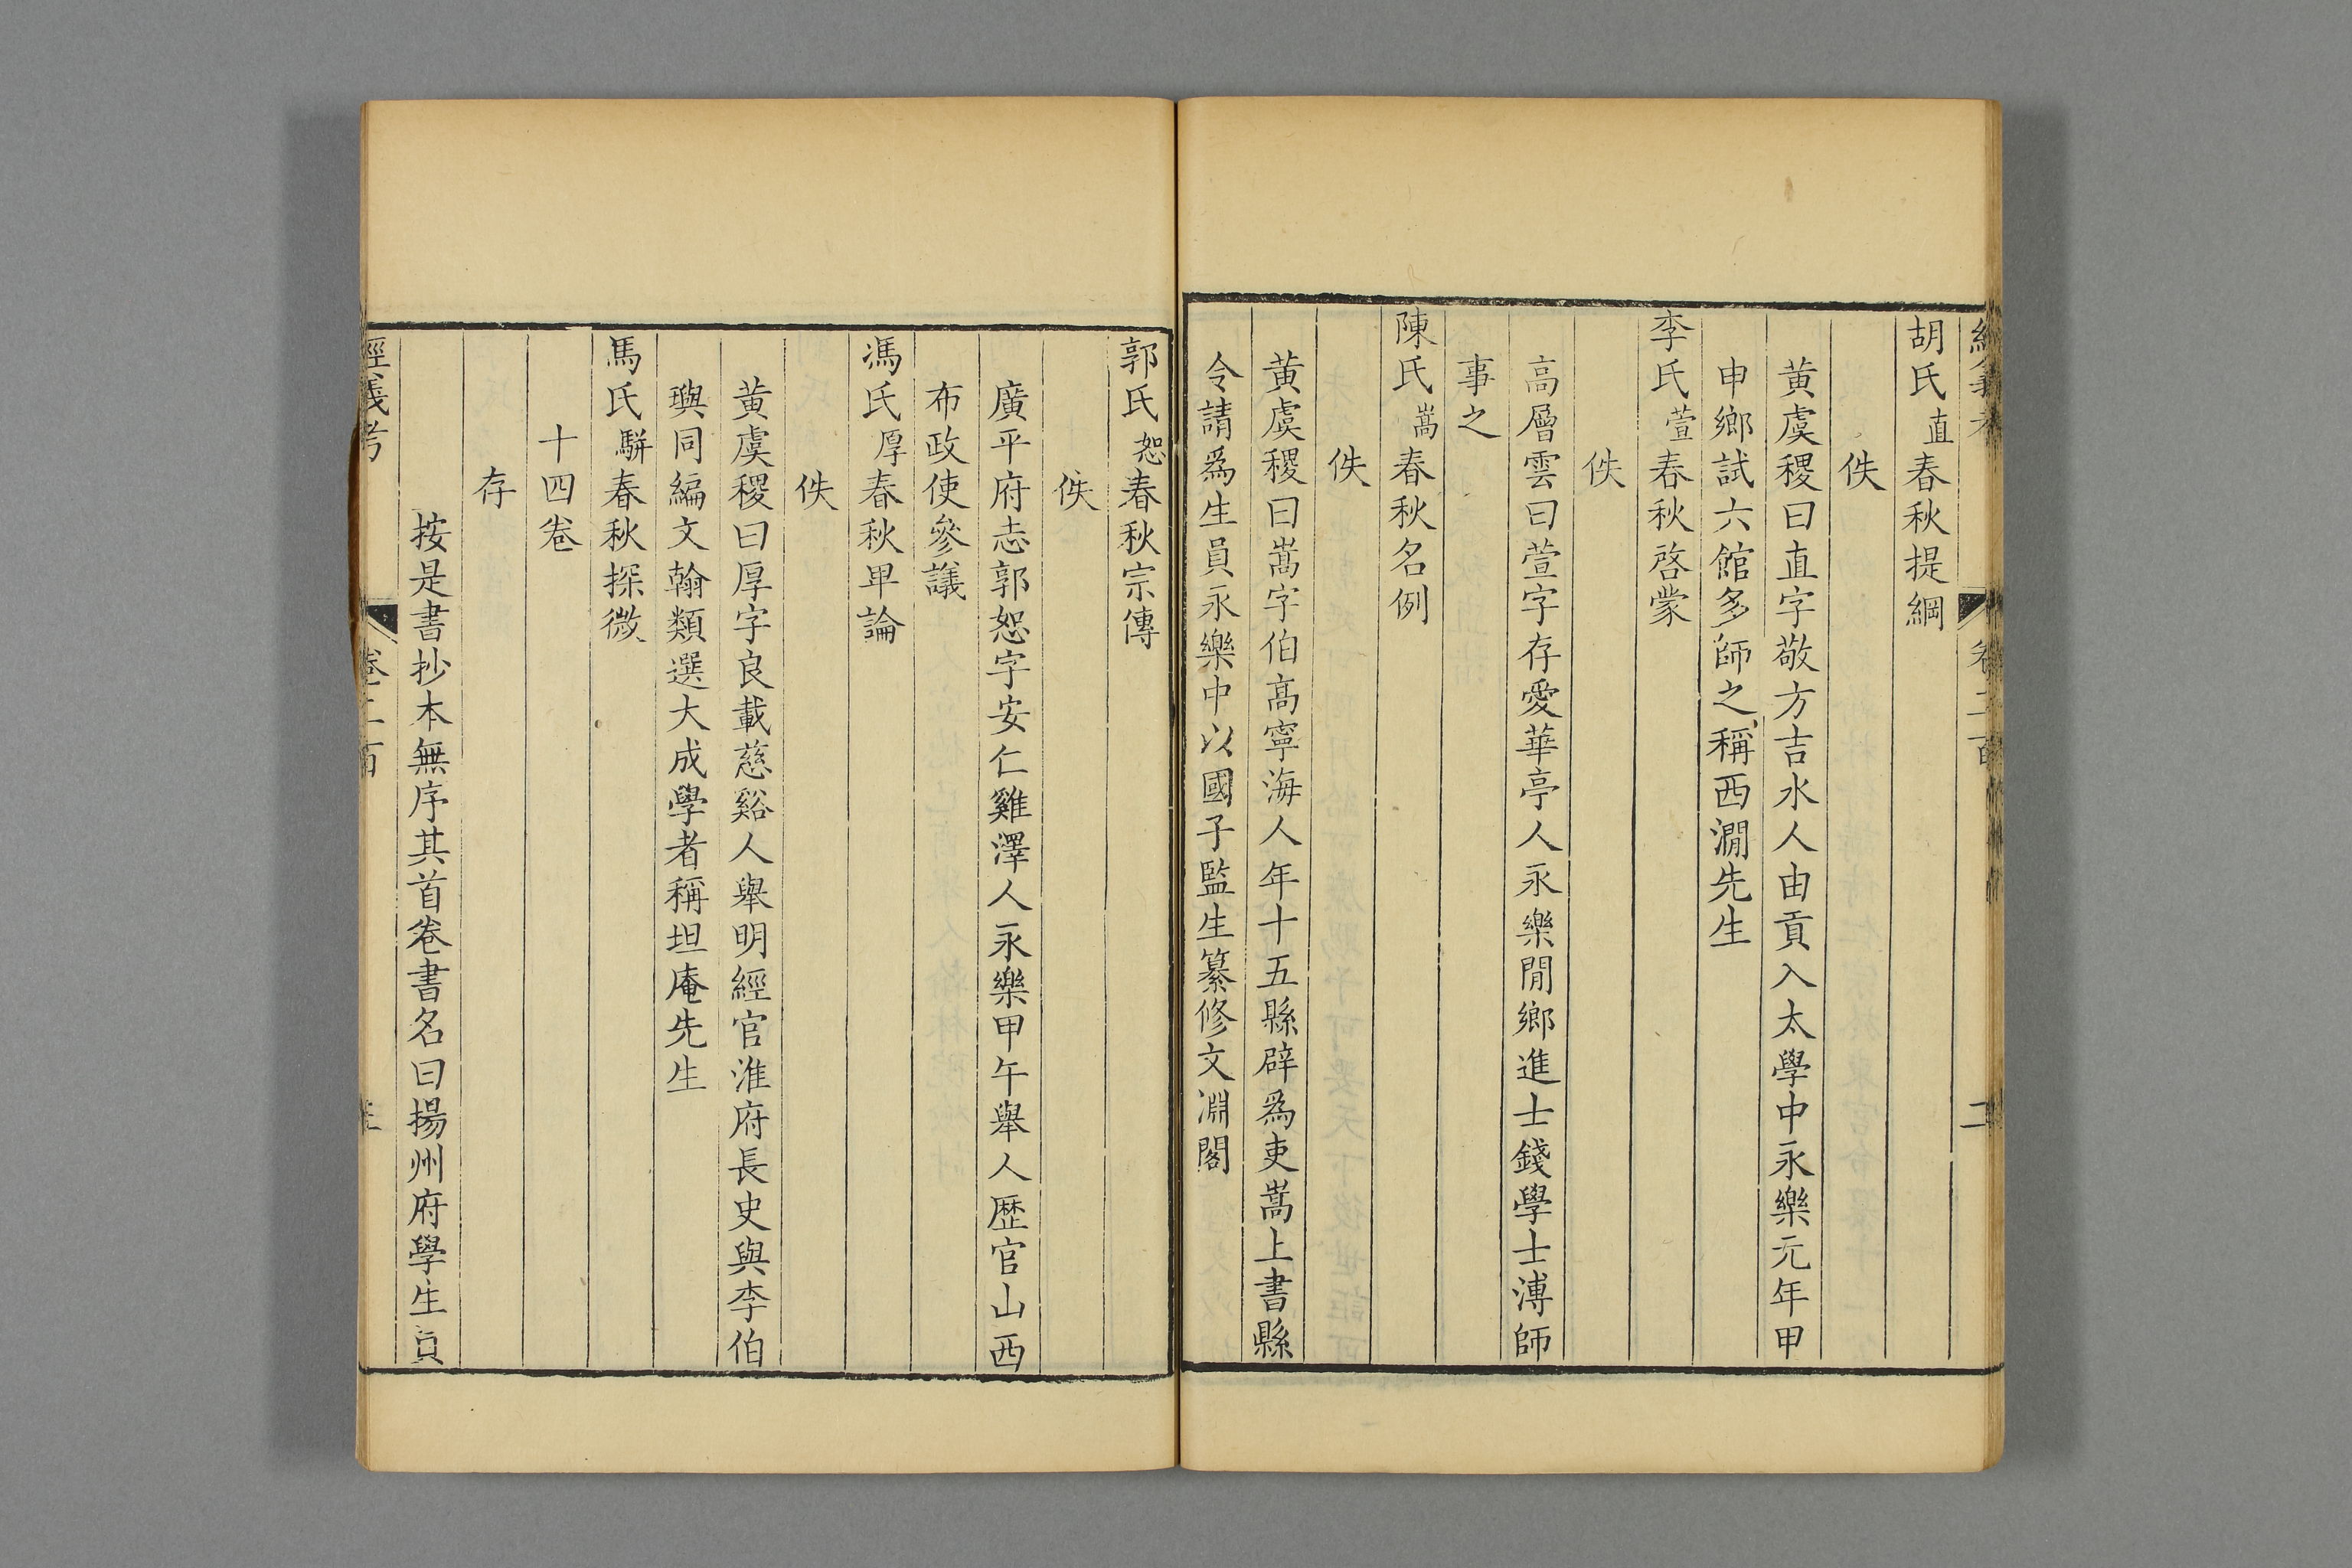 胡氏直春秋提綱
佚
黄虞稷曰直字敬方吉水人由貢入太學中永樂元年甲
申鄉試六館多師之稱西澗先生
李氏萱春秋啓蒙
佚
高層雲曰萱字存愛華亭人永樂閒鄉進士錢學士溥師
事之
陳氏嵩春秋名例
佚
黄虞稷曰嵩字伯高寧海人年十五縣辟爲吏嵩上書縣
令請爲生員永樂中以國子監生纂修文淵閣
郭氏恕春秋宗傳
佚
廣平府志郭恕字安仁雞澤人永樂甲午舉人歷官山西
布政使參議
馮氏厚春秋卑論
佚
黄虞稷曰厚字良載慈谿人舉明經官淮府長史與李伯
璵同編文翰類選大成學者稱坦庵先生
馬氏駢春秋探微
十四卷
存
按是書抄本無序其首卷書名曰揚州府學生員
經義考 卷二百